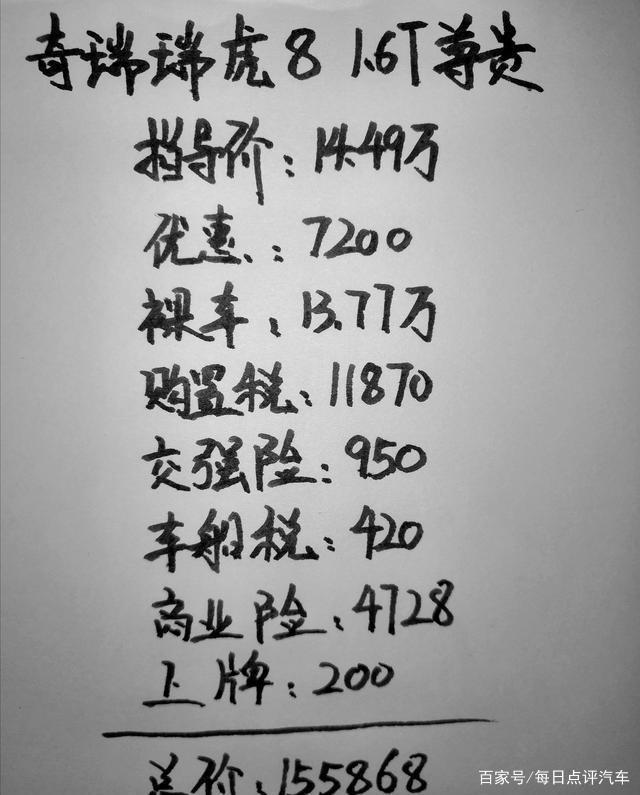 奇瑞瑞虎8 1.6T尊贵
指导价：14.49万
优惠：7200
裸车：13.77万
购置税：11870
交强险：950
车船税：420
商业险：4728
上牌：200
总价：155868
百家号/每日点评汽车